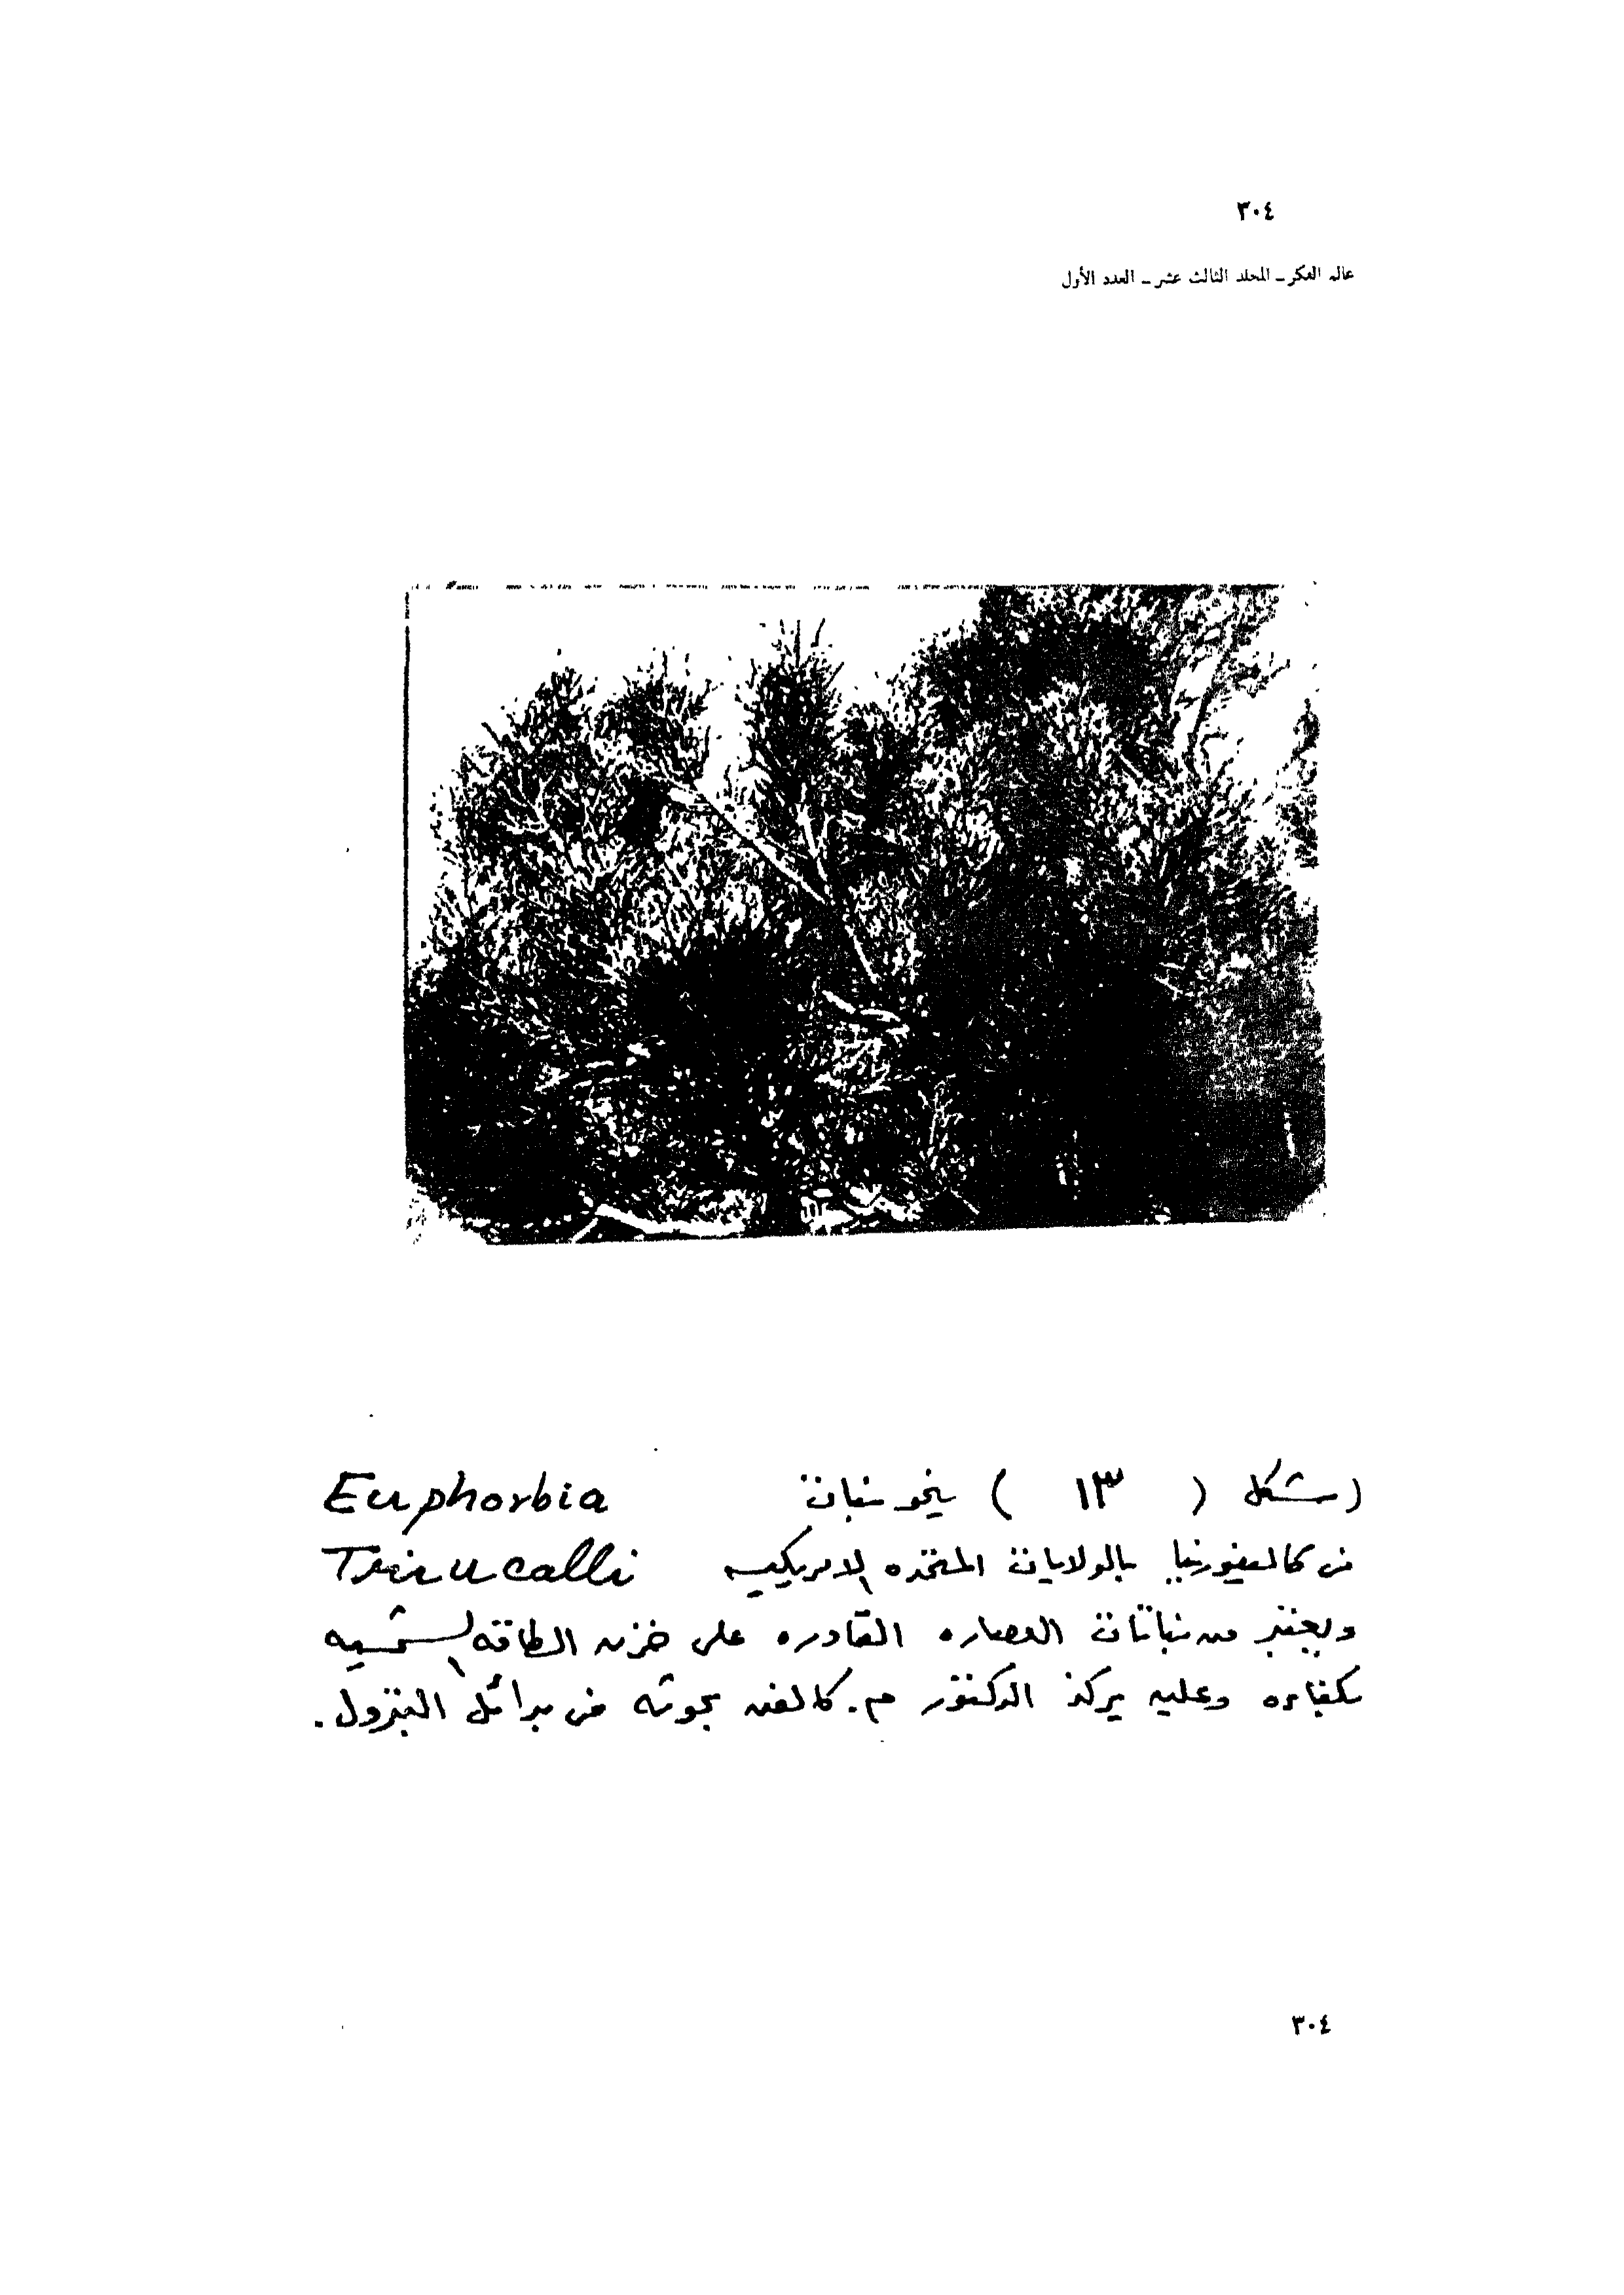 ٣٠٤
عالم الفكر - المجلد الثالث عشر - العدد الأول
(شكل ( ١٣ ) ينمو نبات Euphorbia
في كاليفورنيا بالولايات المتحده الامريكيه Tirucalli
ويعتبر من نباتات العصاره القادره على خزن الطاقه الشمسيه
بكفاءه وعليه يركز الدكتور م. كالفن بحوثه في بدائل البترول.
٣٠٤